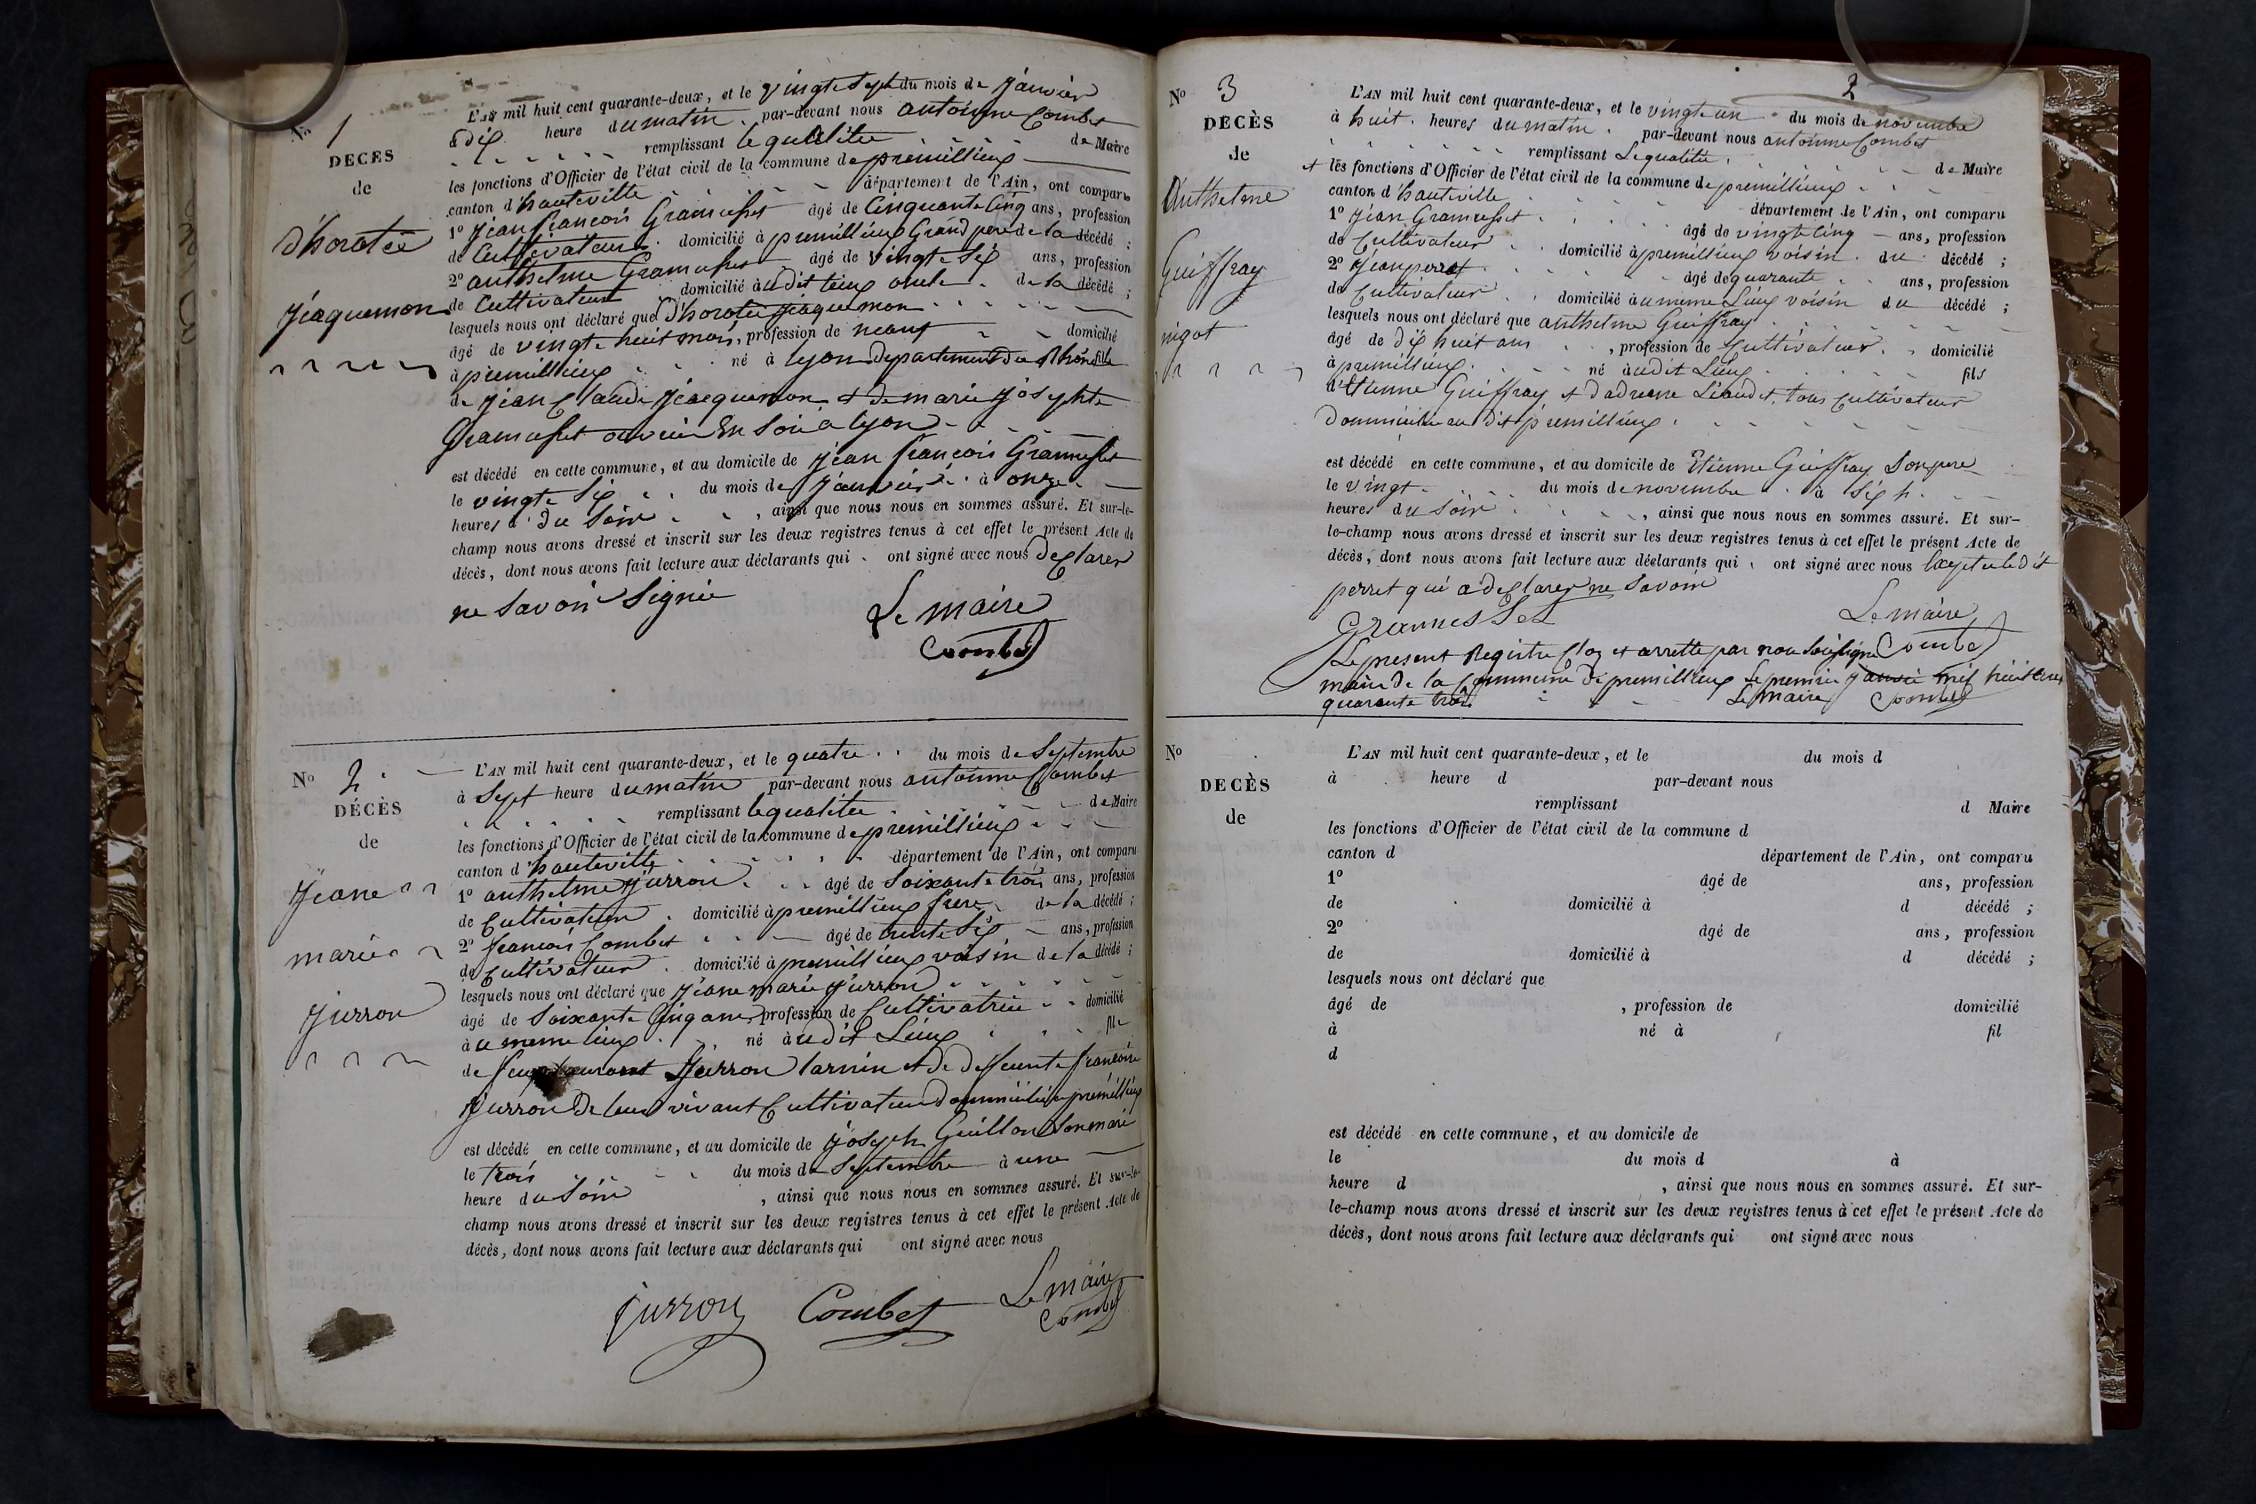 No 1
DÉCÈS
de
D'horotée
Jeaquemon
L'AN mil huit cent quarante-deux, et le vingt sept du mois de Janvier
à dix heure du matin par-devant nous antoinne Combet
remplissant le qualitée de Maire
les fonctions d'Officier de l'état civil de la commune de premillieux
canton d'hauteville département de l'Ain, ont comparu
1º Jean francois Gramusset âgé de Cinquante Cinq ans, profession
de Cultivateur domicilié à premillieux Grand pere de la décédé ;
2º anthelme Gramusset âgé de vingt Six ans, profession
de Cultivateur domicilié audit lieux oncle de la décédé ;
lesquels nous ont déclaré que D'horotée Jeaquemon
âgé de vingt huit mois, profession de neant domicilié
à premillieux né à lyon Departement du Rhône fille
de Jean Claude Jeaquemon et de marie Josephte
Gramusset ouvrier En Soie a lyon
est décédé en cette commune, et au domicile de Jean francois Gramusset
le vingt Six du mois de Janvier à onze
heures du Soir, ainsi que nous nous en sommes assuré. Et sur-le-
champ nous avons dressé et inscrit sur les deux registres tenus à cet effet le présent Acte de
décès, dont nous avons fait lecture aux déclarants qui ont signé avec nous Declarer
ne Savoir Signée
Le maire
Combet
No 2
DÉCÈS
de
Jeane
marie
Jurron
L'AN mil huit cent quarante-deux, et le quatre du mois de Septembre
à Sept heure du matin par-devant nous antoinne Combet
remplissant le qualitée de Maire
les fonctions d'Officier de l'état civil de la commune de premillieux
canton d'hauteville département de l'Ain, ont comparu
1º anthelme Jurron âgé de Soixante trois ans, profession
de Cultivateur domicilié à premillieux frere de la décédé ;
2º francois Combet âgé de trente Six ans, profession
de Cultivateur domicilié à premillieux voisin de la décédé ;
lesquels nous ont déclaré que Jeane marie Jurron
âgé de Soixante Cinq ans, profession de Cultivatrice domicilié
au meme lieux né audit Lieux fille
de feux Laurent Jurron larnin et de deffeunte francoise
Jurron De leur vivant Cultivateur Domiciliée a premillieux
est décédé en cette commune, et au domicile de Joseph Guillon Son mari
le trois du mois de Septembre à une
heure du Soir, ainsi que nous nous en sommes assuré. Et sur-le-
champ nous avons dressé et inscrit sur les deux registres tenus à cet effet le présent Acte de
décès, dont nous avons fait lecture aux déclarants qui ont signé avec nous
jurron Combet Le maire
Combet
2
No 3
DÉCÈS
de
Anthelme
Guiffray
nigot
L'AN mil huit cent quarante-deux, et le vingt un du mois de novembre
à huit heures du matin par-devant nous antoinne Combet
remplissant Le qualitée de Maire
les fonctions d'Officier de l'état civil de la commune de premillieux
canton d'hauteville département de l'Ain, ont comparu
1º Jean Gramusset âgé de vingt Cinq ans, profession
de Cultivateur domicilié à premillieux voisin du décédé ;
2º Jean perret âgé de quarante ans, profession
de Cultivateur domicilié au meme Lieux voisin du décédé ;
lesquels nous ont déclaré que anthelme Guiffray
âgé de dix huit ans, profession de Cultivateur domicilié
à premillieux né audit Lieux fils
d'Etienne Guiffray et d'adrienne Liaudet, tous Cultivateur
Domiciliée au Dit premillieux
est décédé en cette commune, et au domicile de Etienne Guiffray Son pere
le vingt du mois de novembre à Six h
heures du Soir, ainsi que nous nous en sommes assuré. Et sur-
le-champ nous avons dressé et inscrit sur les deux registres tenus à cet effet le présent Acte de
décès, dont nous avons fait lecture aux déclarants qui ont signé avec nous Exepter le dit
perret qui a declarer ne Savoir
Grammusset Le maire
Combet
Le present Registre Clos et arretté par nou Soussigné
maire De la Commune De premillieux Le premier Janvié mil huit Cent
quarante trois Le maire Combet
No
DÉCÈS
de
L'AN mil huit cent quarante-deux, et le du mois d
à heure d par-devant nous
remplissant d Maire
les fonctions d'Officier de l'état civil de la commune d
canton d département de l'Ain, ont comparu
1º âgé de ans, profession
de domicilié à d décédé ;
2º âgé de ans, profession
de domicilié à d décédé ;
lesquels nous ont déclaré que
âgé de , profession de domicilié
à né à fil
d
est décédé en cette commune, et au domicile de
le du mois d à
heure d , ainsi que nous nous en sommes assuré. Et sur-
le-champ nous avons dressé et inscrit sur les deux registres tenus à cet effet le présent Acte de
décès, dont nous avons fait lecture aux déclarants qui ont signé avec nous